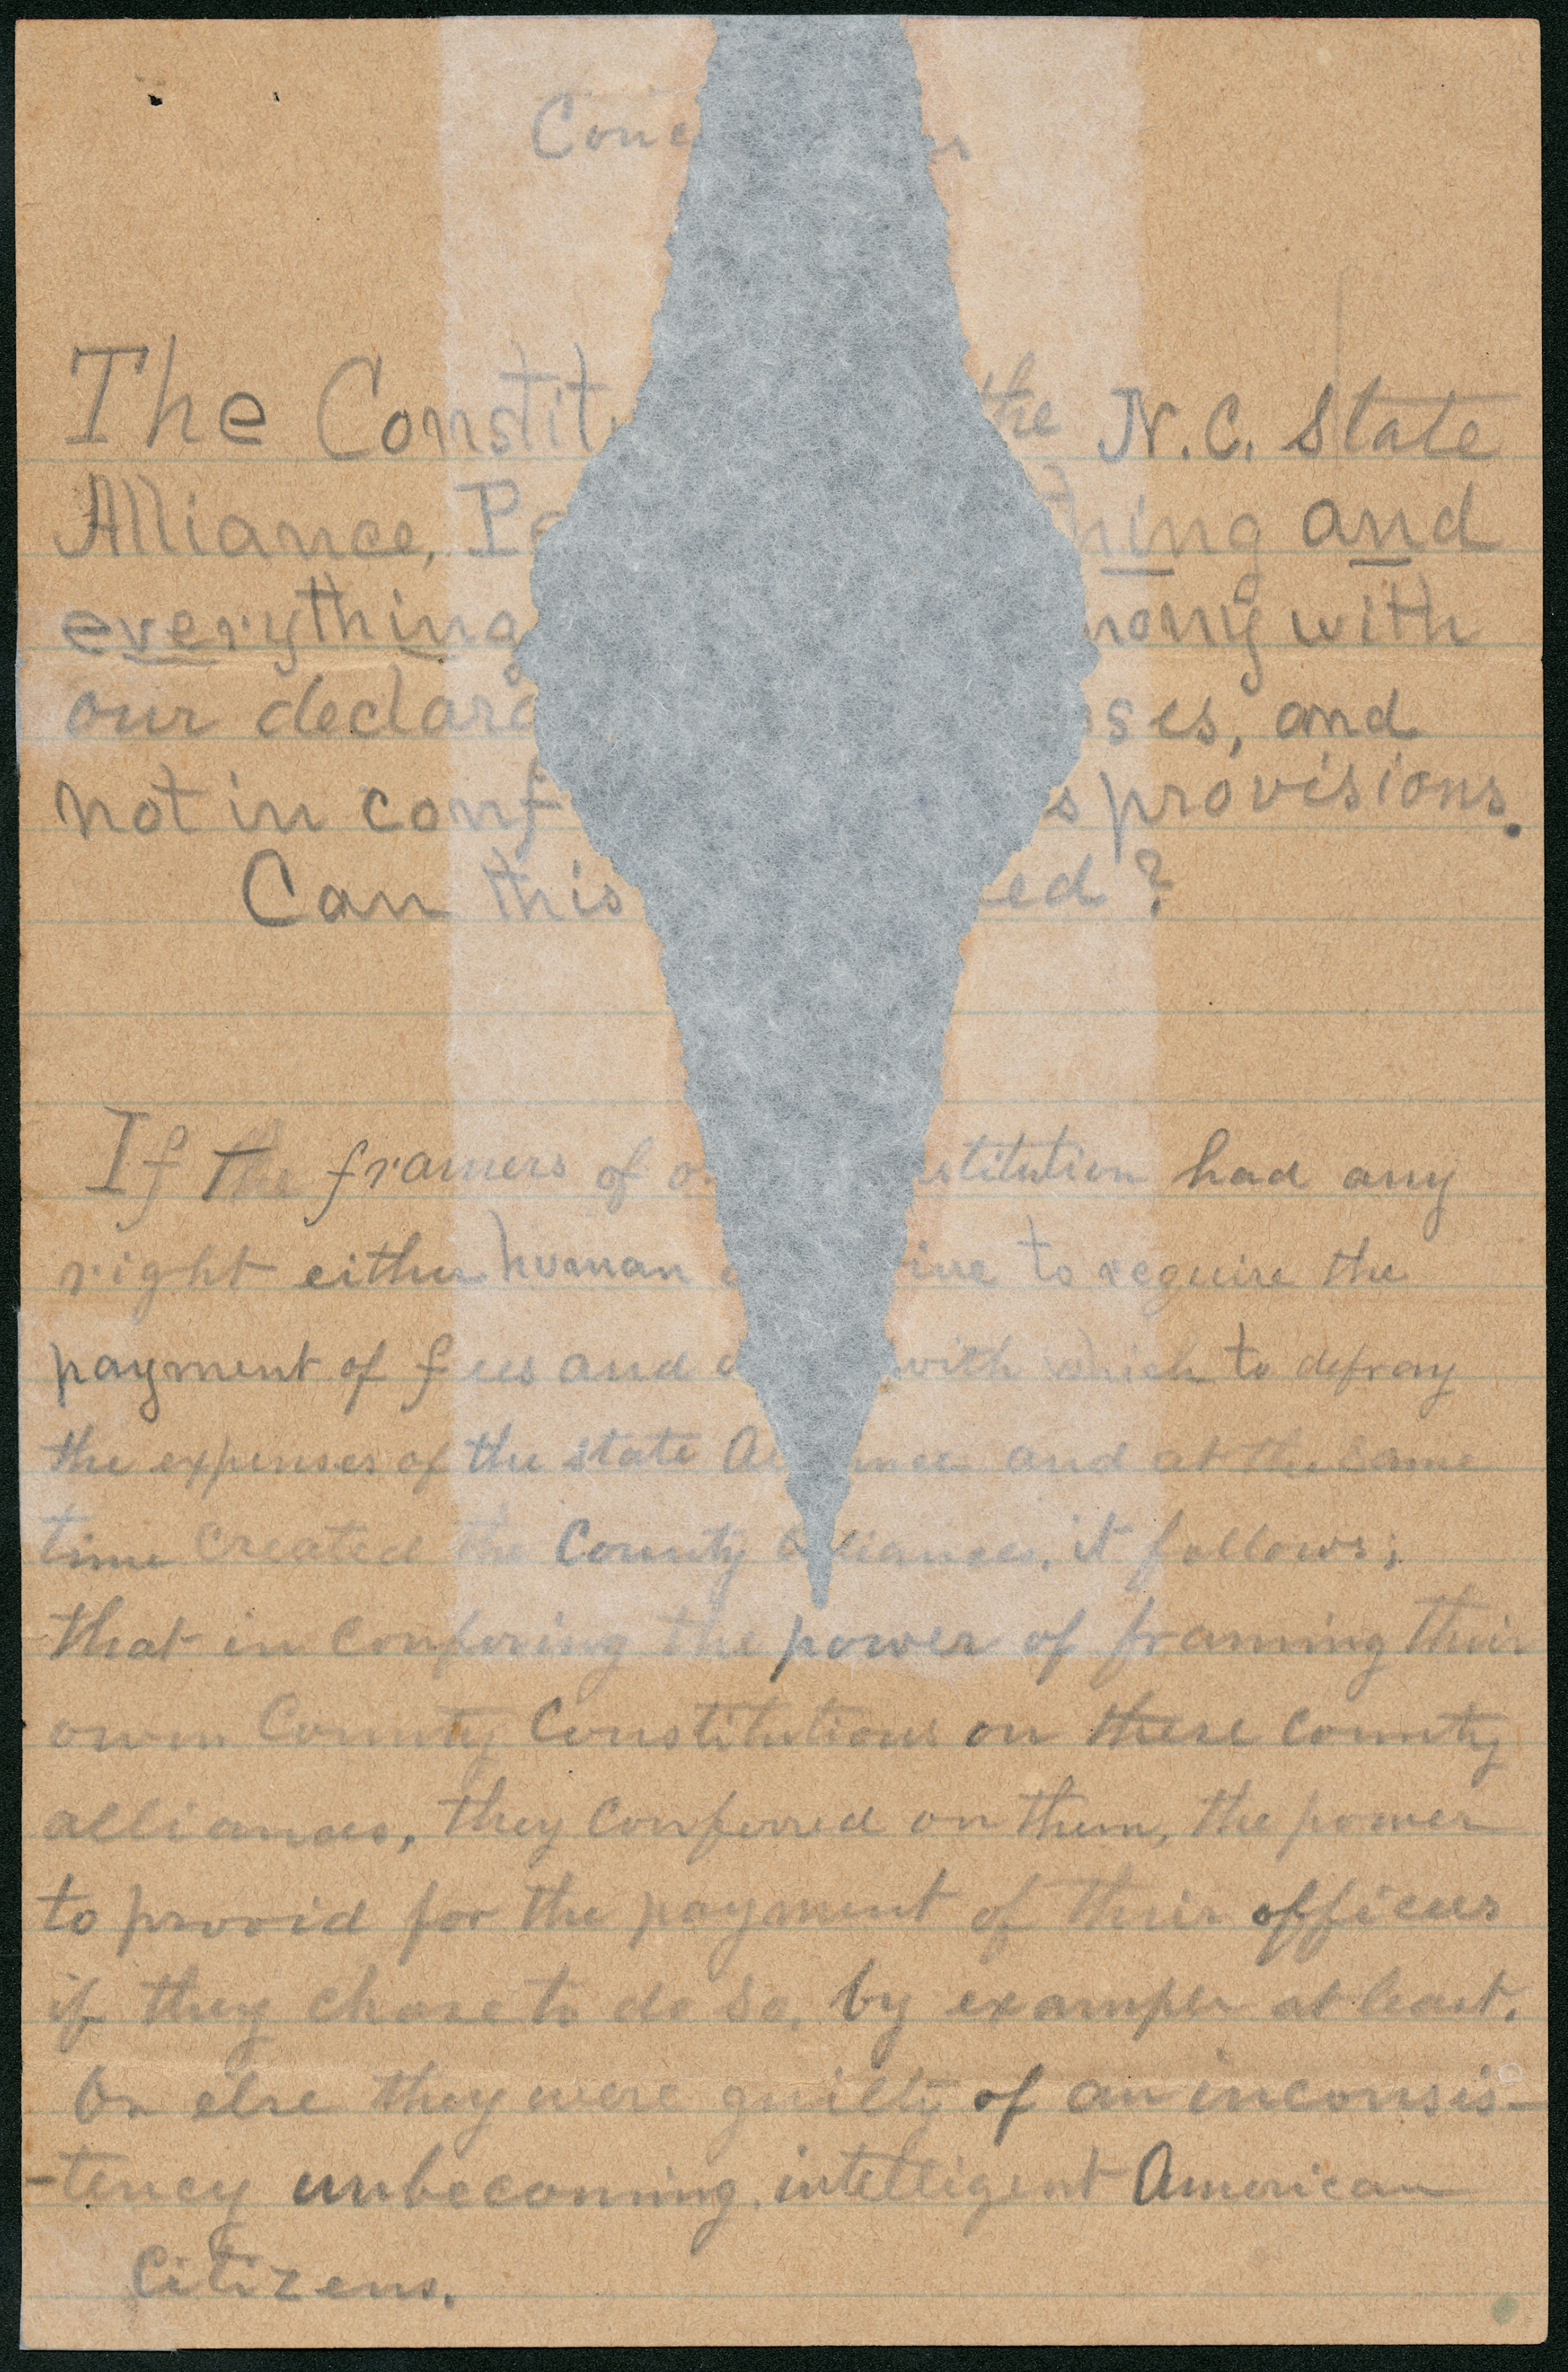 The the N.C. State
Alliance, and
everything with
our and
not in provisions.
Can this ?
If the framers of had any
right either human to require the
payment of fees and with which to defray
the expenses of the state and at the same
time created the County it follows;
that in confering the power of framing their
own County Constitutions on these county
alliances, they conferred on them, the power
to provid for the payment of their officers
if they chose to do so, by example at least.
Or else they were guilty of an inconsis-
-tency unbecoming intelligent American
Citizens.